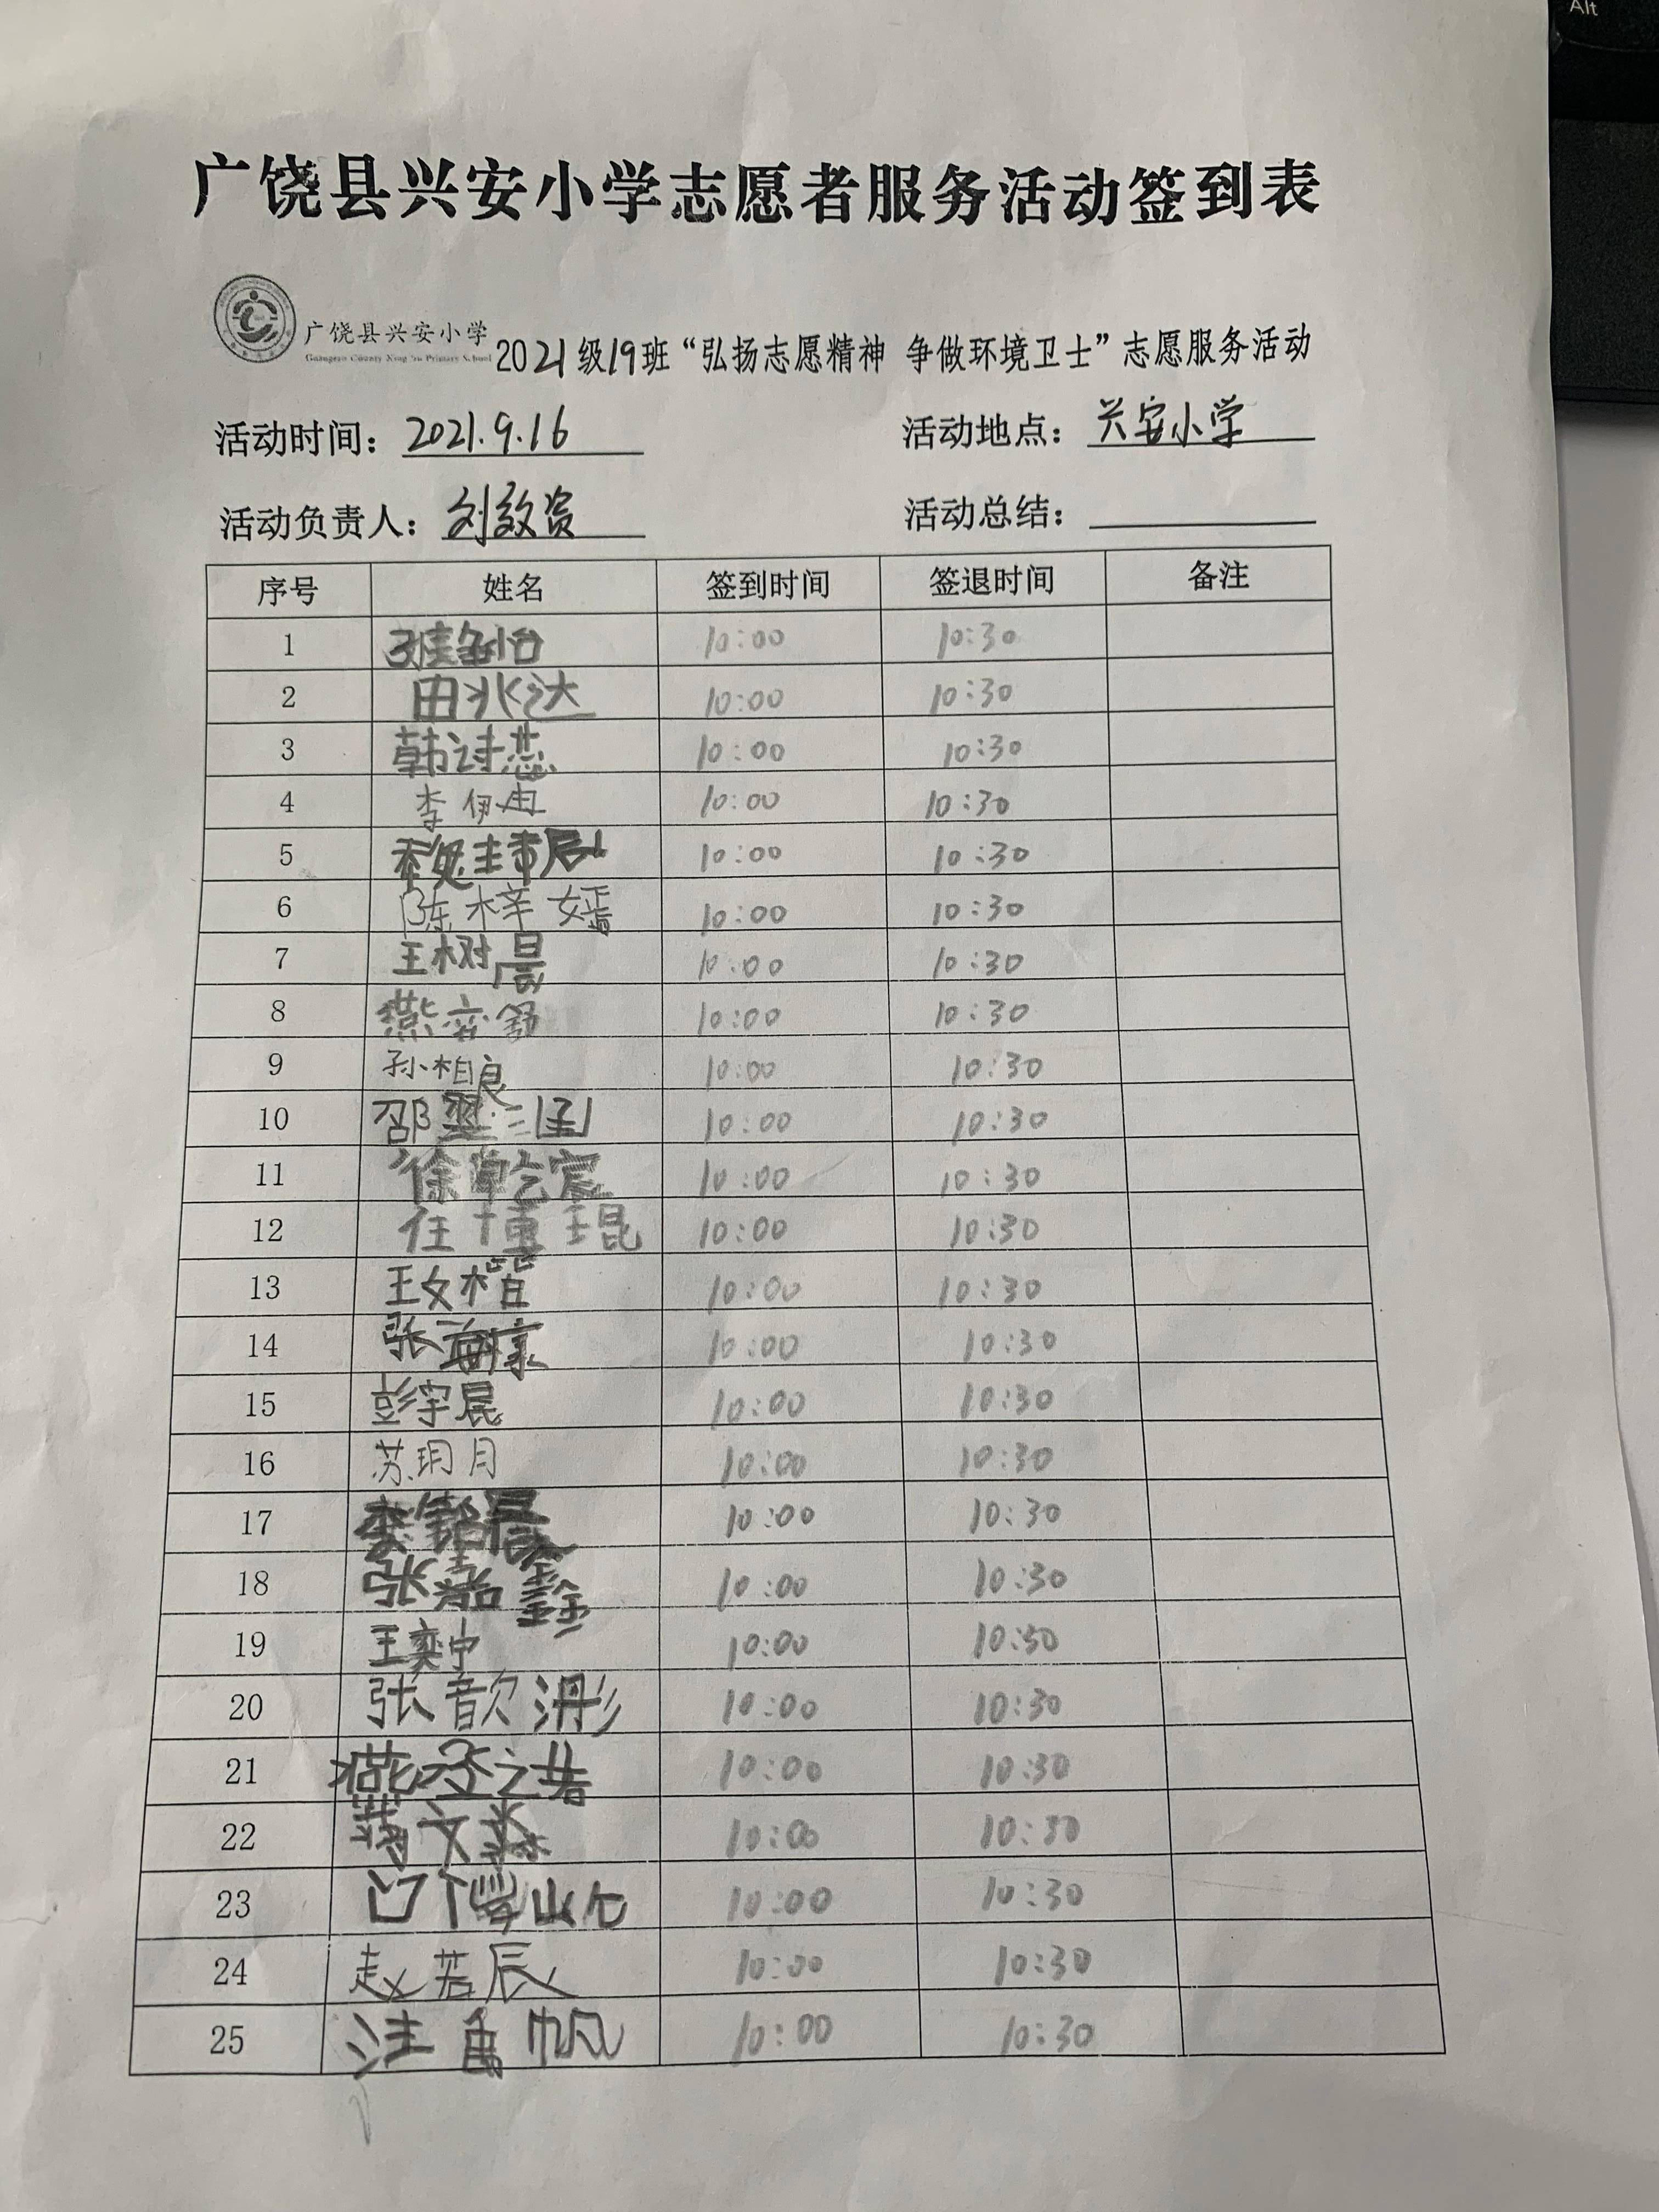 Alt
广饶县兴安小学志愿者服务活动签到表
广饶县兴安小学
Guangrao County Xing'an Primary School
2021级19班“弘扬志愿精神 争做环境卫士”志愿服务活动
活动时间：2021.9.16 活动地点：兴安小学
活动负责人：刘效资 活动总结：
序号 姓名 签到时间 签退时间 备注
1 10:00 10:30
2 田兆达 10:00 10:30
3 韩诗蕊 10:00 10:30
4 李伊冉 10:00 10:30
5 10:00 10:30
6 陈梓嫣 10:00 10:30
7 王树晨 10:00 10:30
8 燕奕舒 10:00 10:30
9 孙相良 10:00 10:30
10 邵 10:00 10:30
11 徐乾宸 10:00 10:30
12 任 琨 10:00 10:30
13 王文楷 10:00 10:30
14 张 10:00 10:30
15 彭宇晨 10:00 10:30
16 苏玥月 10:00 10:30
17 李铭晨 10:00 10:30
18 张嘉鑫 10:00 10:30
19 王奕宁 10:00 10:30
20 张歆浵 10:00 10:30
21 10:00 10:30
22 10:00 10:30
23 10:00 10:30
24 赵若辰 10:00 10:30
25 帆 10:00 10:30